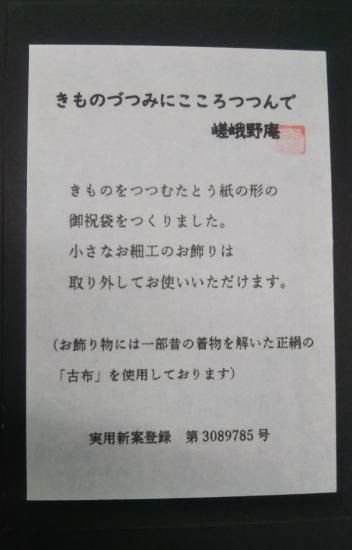 きものづつみにこころつつんで
嵯峨野庵
きものをつつむたとう紙の形の
御祝袋をつくりました。
小さなお細工のお飾りは
取り外してお使いいただけます。
(お飾り物には一部昔の着物を解いた正絹の
「古布」を使用しております)
実用新案登録 第3089785号